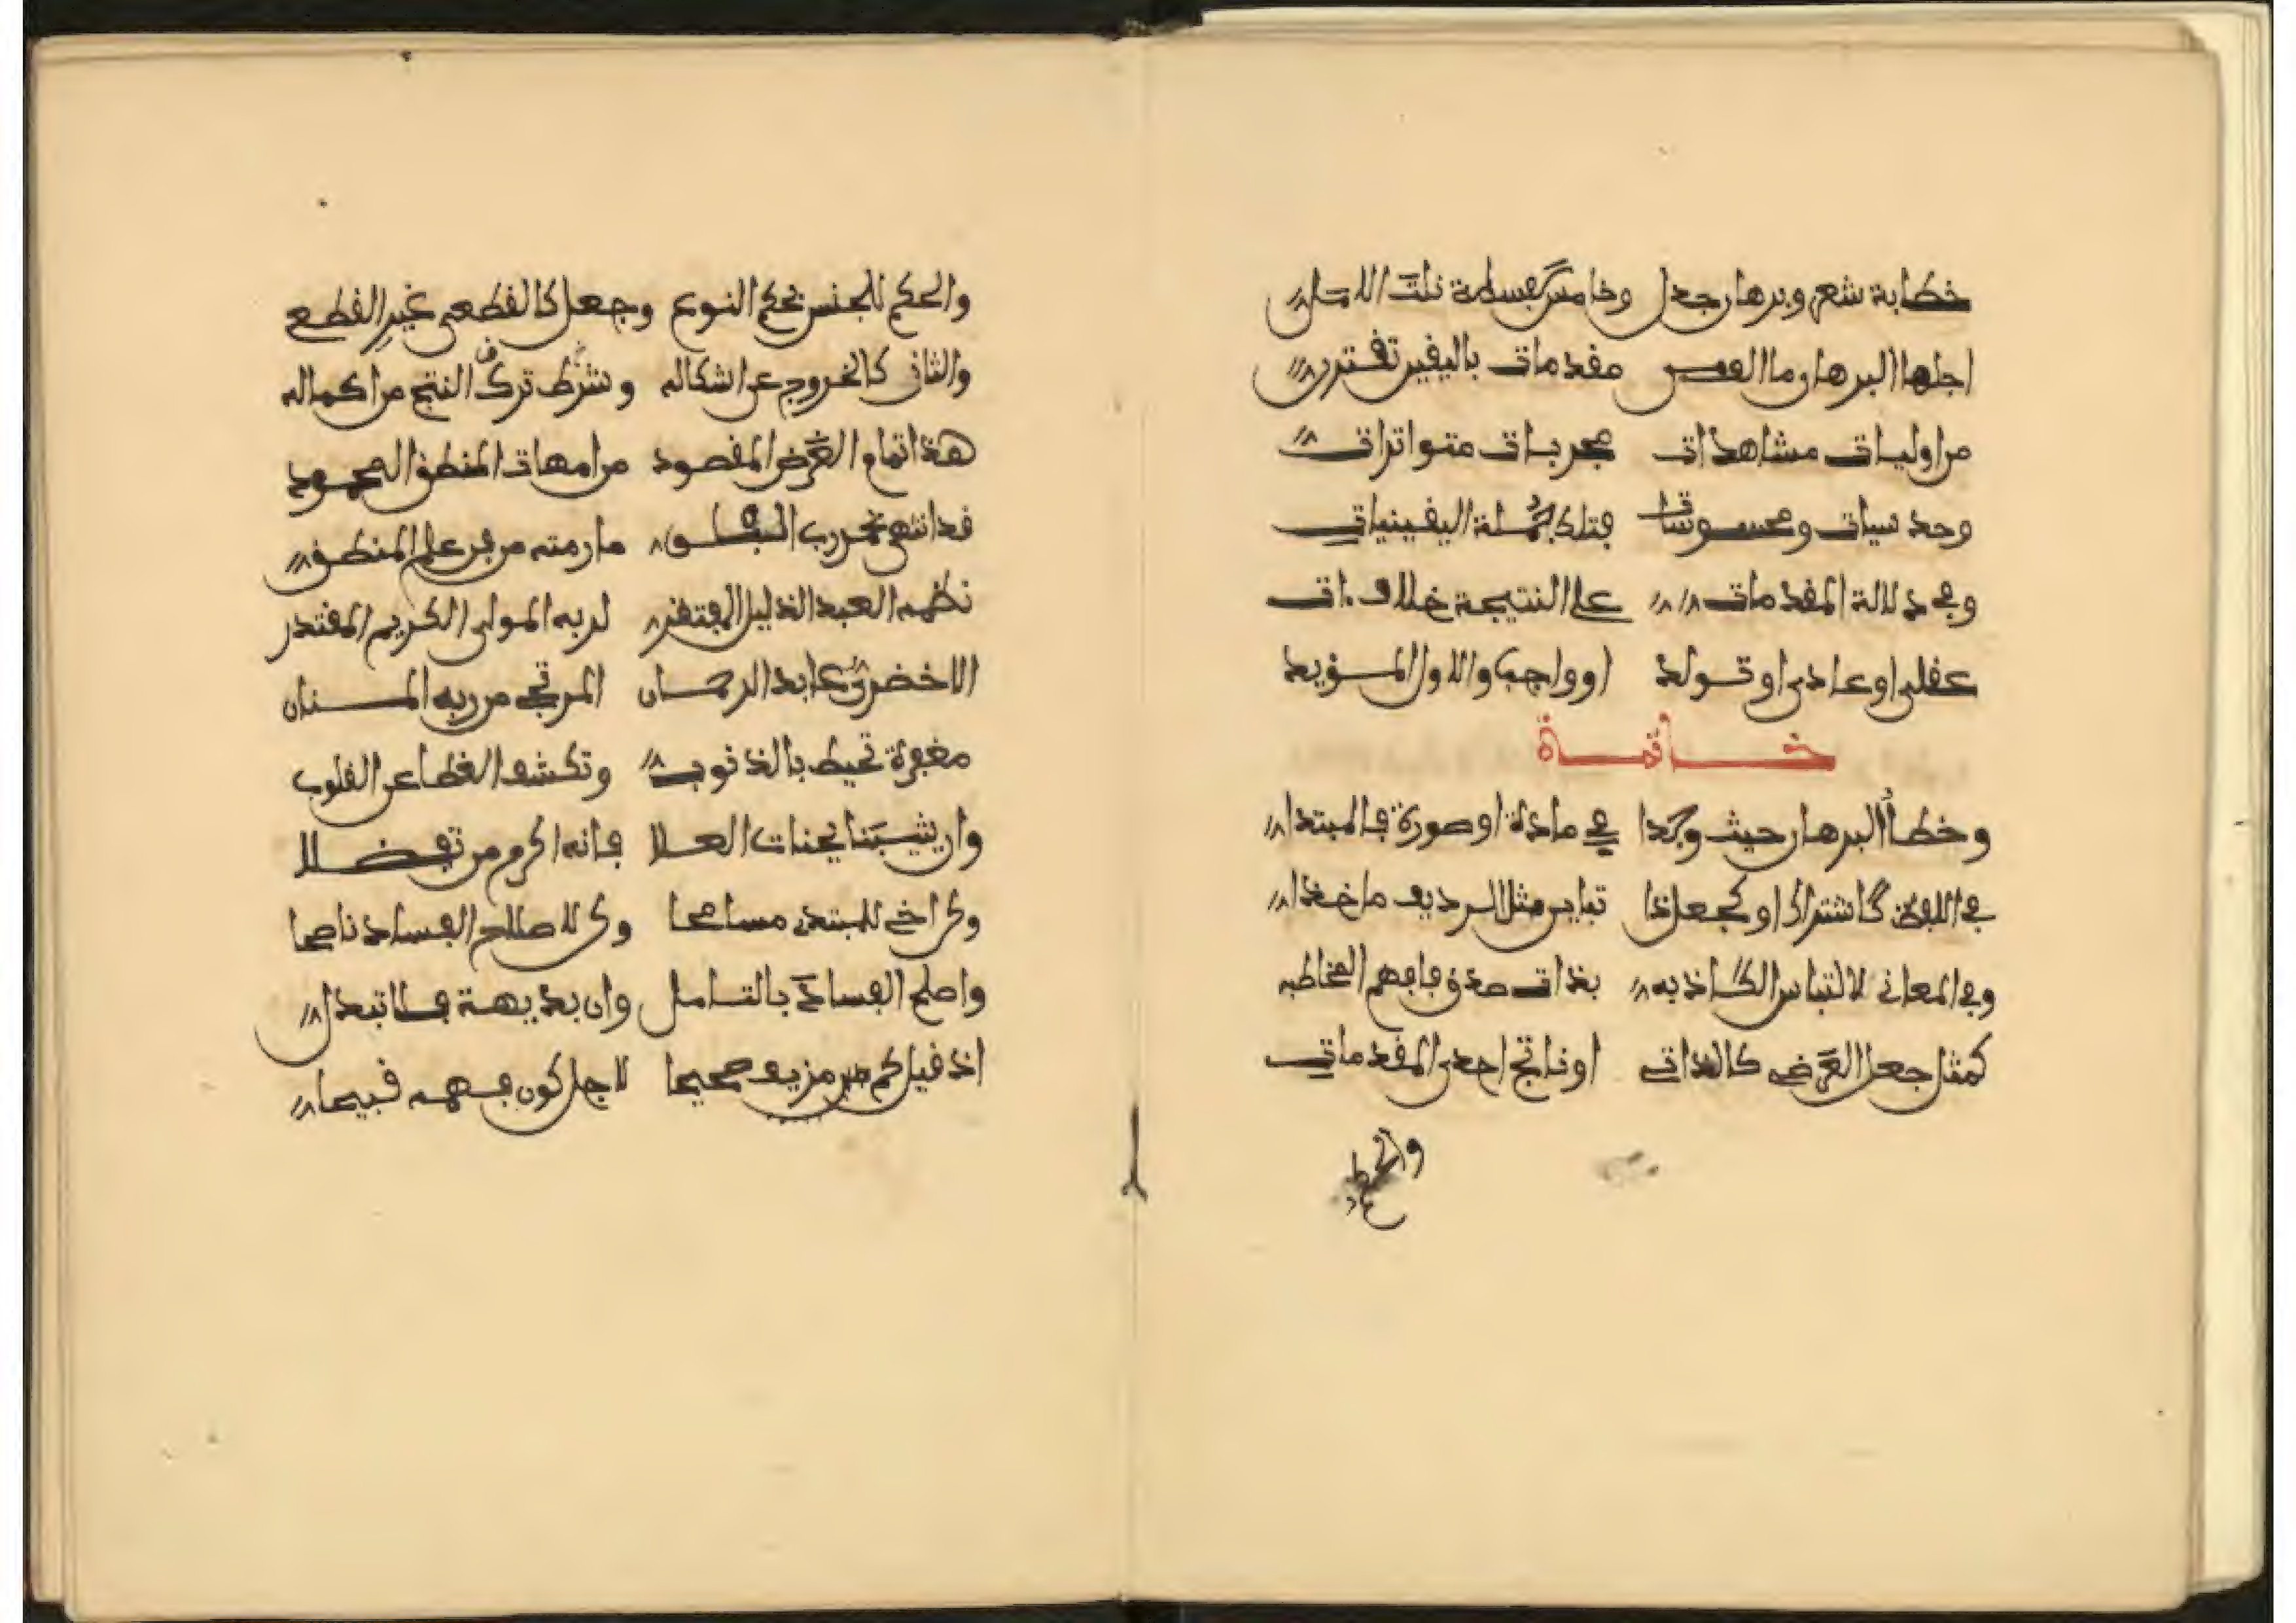 خطابة شعر وبرهان جدل وخامس سفسطة نلت الامل
اجلها البرهان ما الف من مقدمات باليقين تقترن
من اوليات مشاهدات مجربات متواترات
وحدسيات ومحسوسات فتلك جملة اليقينيات
وفي دلالة المقدمات على النتيجة خلاف ءات
عقلي او عادي او تولد او واجب والاول المؤيد
خاتمة
وخطأ البرهان حيث وجدا في مادة او صورة فالمبتدا
في اللفظ كاشتراك او كجعل ذا تباين مثل الرديف ماخذا
وفي المعاني لالتباس الكاذبه بذات صدق فافهم المخاطبه
كمثل جعل العرضي كالذاتي او ناتج احدى المقدمات
والحكم
والحكم للجنس بحكم النوع وجعل كالقطعي غير القطع
والثان كالخروج عن اشكاله وشرط ترك النتج من اكماله
هذا تمام الغرض المقصود من امهات المنطق المحمود
قد انتهى بحمد رب الفلق ما رمته من فن علم المنطق
نظمه العبد الذليل المفتقر لربه المولى الكريم المقتدر
الاخضري عابد الرحمان المرتجي من ربه المنان
مغفرة تحيط بالذنوب وتكشف الغطا عن القلوب
وان يثيبنا بجنات العلا فانه اكرم من تفضلا
وكن اخي للمبتدي مسامحا وكن لاصلاح الفساد ناصحا
واصلح الفساد بالتامل وان بديهة فلا تبدل
اذ قيل كم مزيف صحيحا لاجل كون فهمه قبيحا